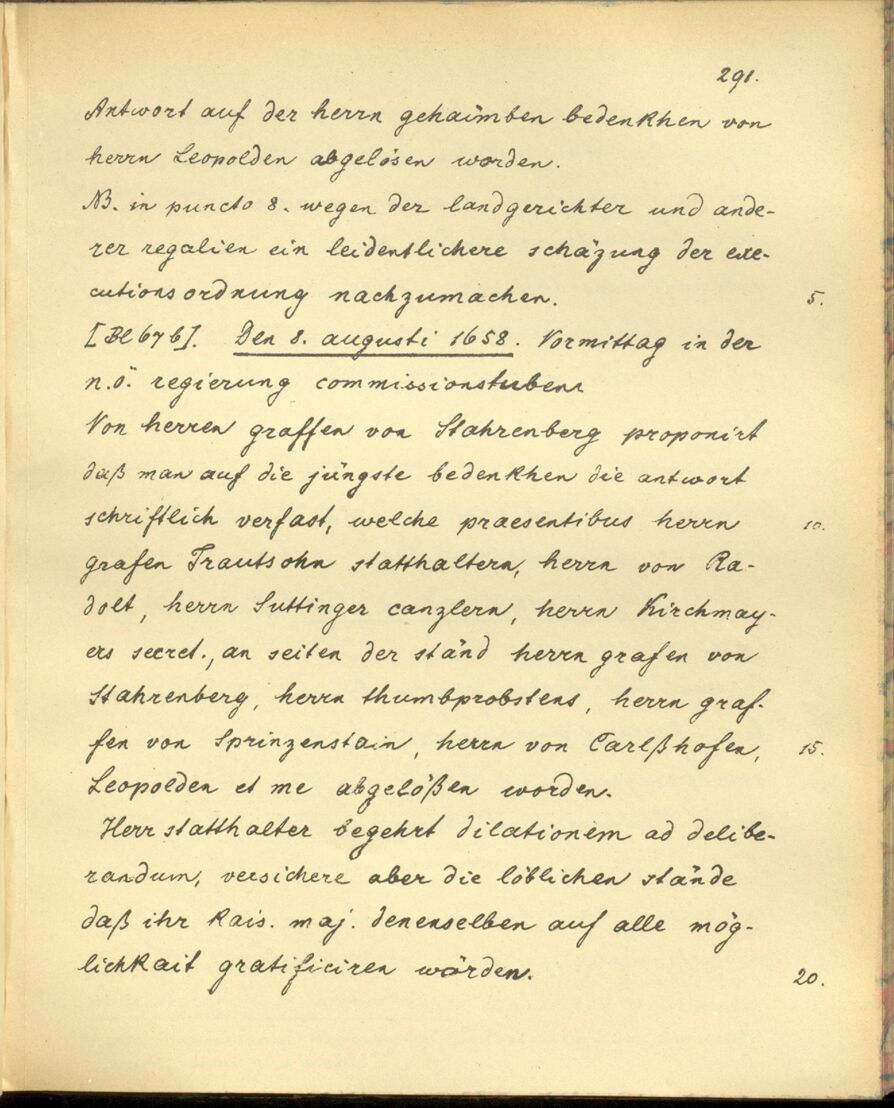 291.
Antwort auf der herrn gehaimben bedenkhen von
herrn Leopolden abgelösen worden.
NB. in puncto 8. wegen der landgerichter und ande-
rer regalien ein leidentlichere schäzung der exe-
cutionsordnung nachzumachen. 5.
[Bl 67 b]. Den 8. augusti 1658. Vormittag in der
n.ö. regierung commissionstuben.
Von herren graffen von Stahrenberg proponirt
daß man auf die jüngste bedenkhen die antwort
schriftlich verfast, welche praesentibus herrn 10.
grafen Trautsohn statthaltern, herrn von Ra-
dolt, herrn Suttinger canzlern, herrn Kirchmay-
ers secret., an seiten der ständ herrn grafen von
Stahrenberg, herrn thumbprobstens, herrn graf-
fen von Sprinzenstain, herrn von Carlßhofen, 15.
Leopolden et me abgelößen worden.
Herr statthalter begehrt dilationem ad delibe-
randum, versichere aber die löblichen stände
daß ihr kais. maj. denenselben auf alle mög-
lichkait gratificiren wörden. 20.